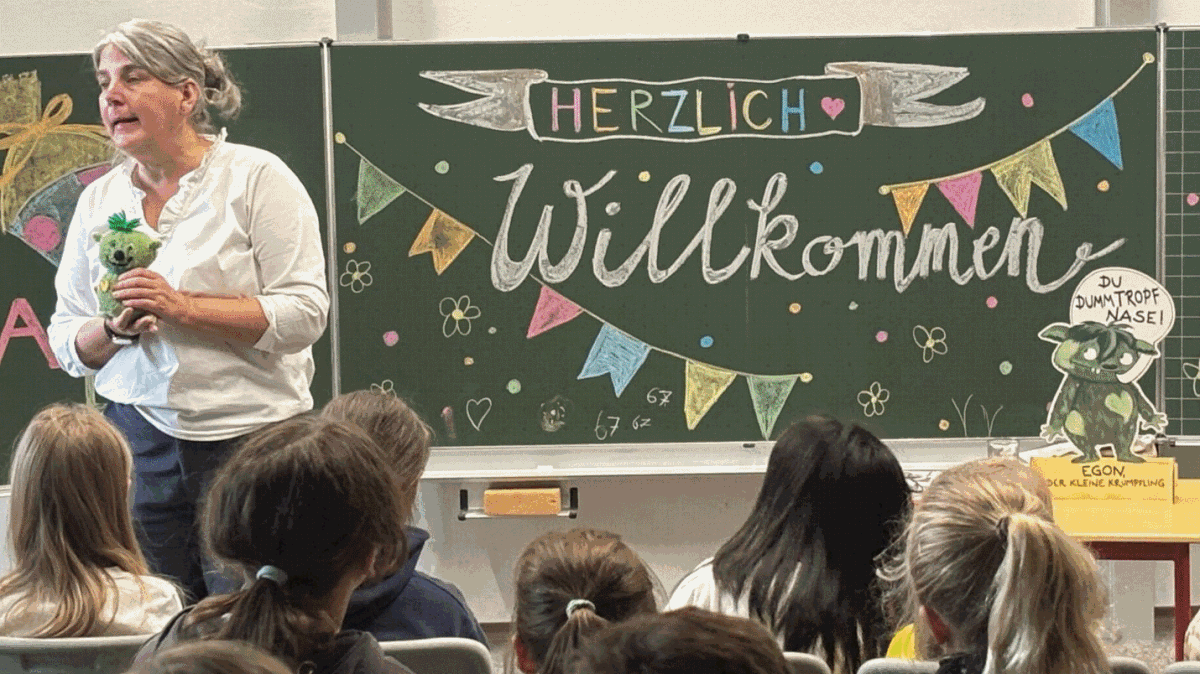 HERZLICH
Willkommen
DU
DUMMTROPF
NASE!
67
67 62
EGON,
DER KLEINE KRUMPFLING
A